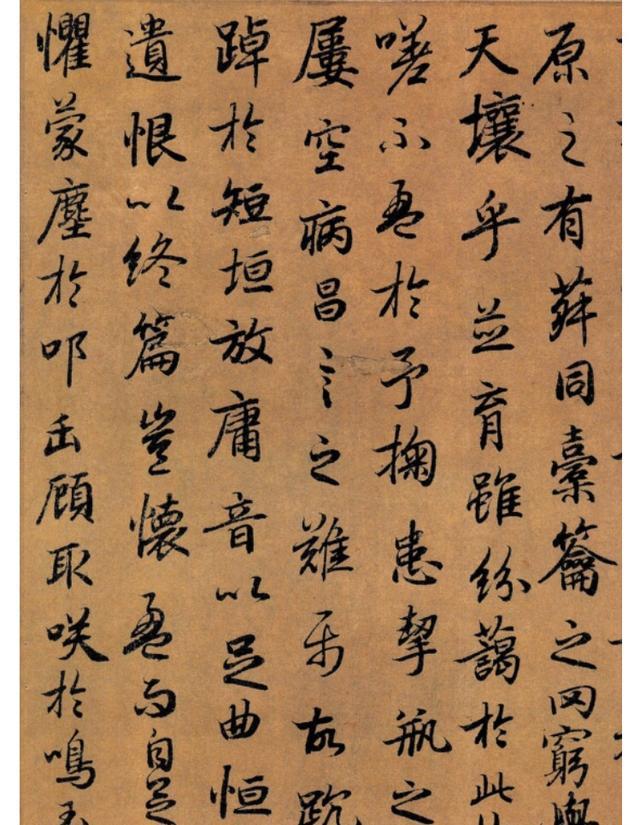 原之有菽同橐籥之罔窮與
天壤乎並育雖紛藹於此
嗟不盈於予掬患挈瓶之
屢空病昌言之難屬故踸
踔於短垣放庸音以足曲恒
遺恨以終篇豈懷盈而自足
懼蒙塵於叩缶顧取咲於鳴玉